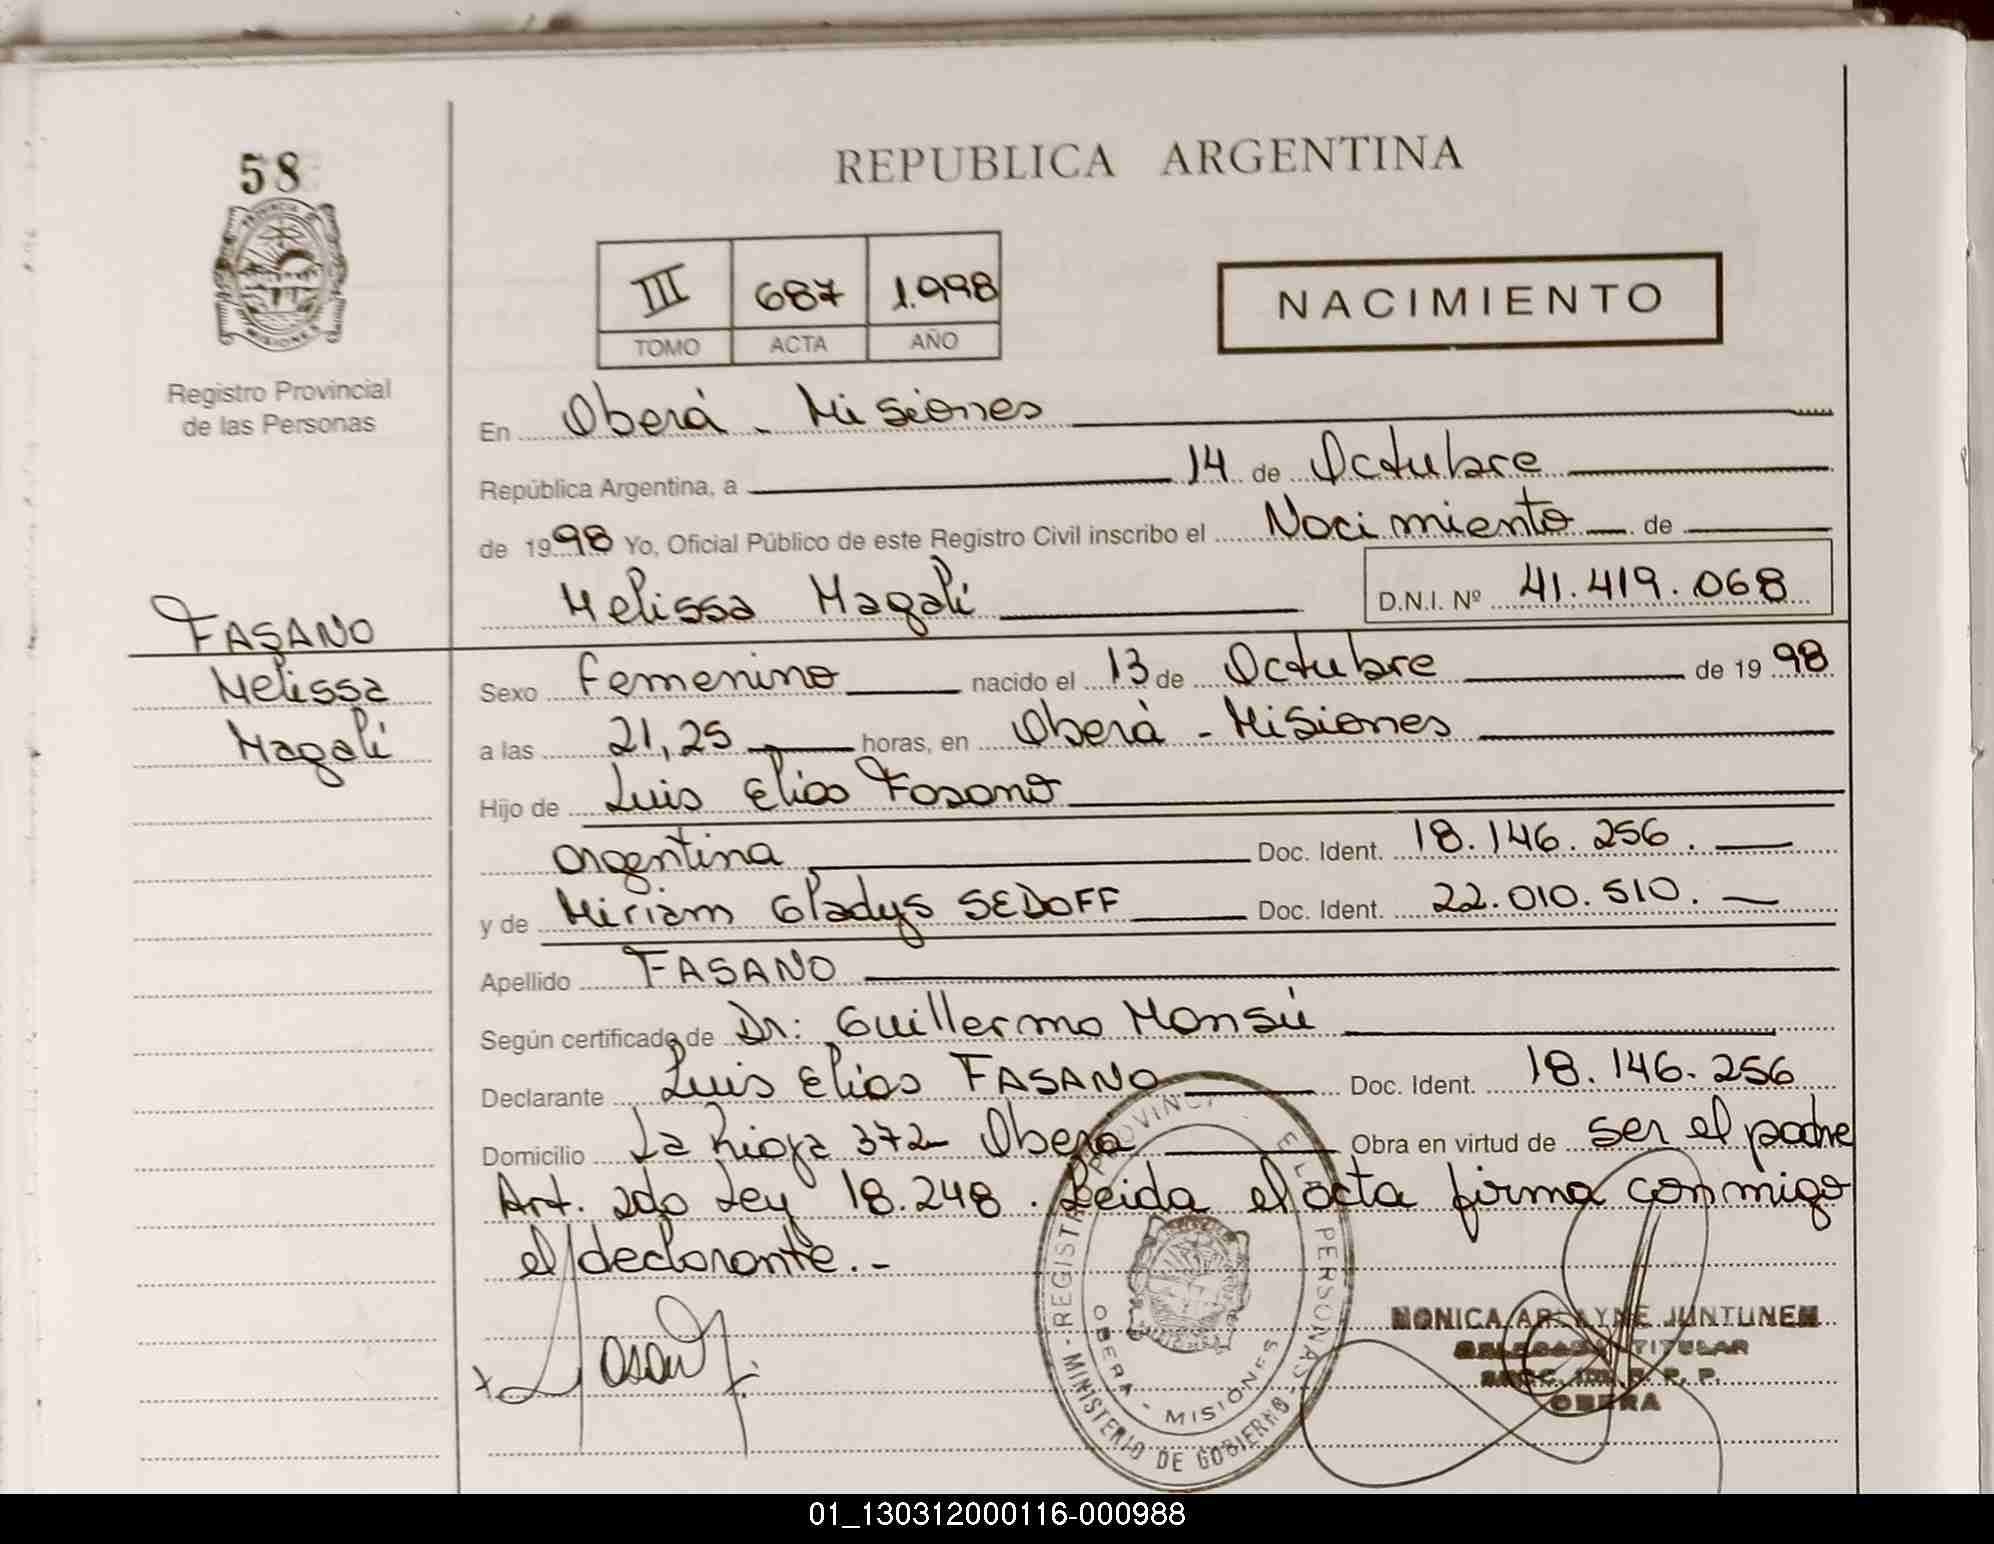 58
REPUBLICA ARGENTINA
III 687 1.998
TOMO ACTA AÑO
NACIMIENTO
Registro Provincial
de las Personas
En Oberá - Misiones
República Argentina, a 14 de Octubre
de 1998 Yo, Oficial Público de este Registro Civil inscribo el Nacimiento de
Melissa Magalí D.N.I. Nº 41.419.068
FASANO
Melissa
Magalí
Sexo Femenino nacido el 13 de Octubre de 1998
a las 21,25 horas, en Oberá - Misiones
Hijo de Luis Elias Fasano
argentina Doc. Ident. 18.146.256.
y de Miriam Gladys SEDOFF Doc. Ident. 22.010.510.
Apellido FASANO
Según certificado de Dr: Guillermo Monsú
Declarante Luis Elias FASANO Doc. Ident. 18.146.256
Domicilio La Rioja 372 - Oberá Obra en virtud de ser el padre
Art. 2do Ley 18.248. Leida el acta firma conmigo
el declarante.-
REGISTRO PROVINCIAL DE LAS PERSONAS
MINISTERIO DE GOBIERNO
OBERA - MISIONES
MONICA ARLAYNE JUNTUNEN
DELEGADA TITULAR
R. P. P.
OBERA
01_130312000116-000988